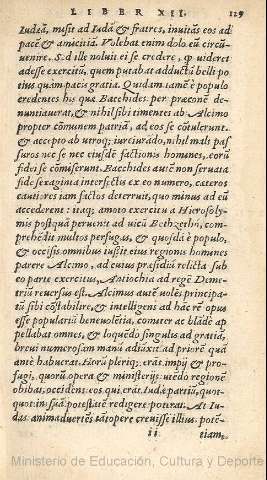 LIBER XII. 129
Iudeã, misit ad Iudã & fratres, inuitãs eos ad
pacẽ & amicitiã. Volebat enim dolo eũ circũ-
uenire. Sed ille noluit ei se credere, videret
adesse exercitũ, quem putabat adductũ belli po
tius quàm pacis gratia. Quidam tamẽ è populo
credentes his quæ Bacchides per præconẽ de-
nuntiauerat, & nihil sibi timentes ab Alcimo
propter cõmunem patriã, ad eos se cõtulerunt.
& accepto ab utroq; iureiurãdo, nihil mali pas
suros nec se nec eiusdẽ factionis homines, eorũ
fidei se cõmiserunt. Bacchides autẽ non seruata
fide sexaginta interfectis ex eo numero, cæteros
cautiores iam factos deterruit, quo minus ad eũ
accederent: itaq; amoto exercitu a Hierosoly-
mis postquã peruenit ad uicũ Bethzethi, com-
prehẽdit multos perfugas, & quosdã è populo,
& occisis omnibus iussit eius regionis homines
parere Alcimo, ad cuius præsidiũ relicta sub
eo parte exercitus, Antiochiã ad regẽ Deme-
triũ reuersus est. Alcimus autẽ volẽs principa-
tũ sibi cõstabilire, & intelligens ad hãc rẽ opus
esse populariũ beneuolẽtia, comiter ac blãde ap
pellabat omnes, & loquẽdo singulis ad gratiã,
breui numerosam manũ adiũxit ad priorẽ quã
antè habuerat. Horũ pleriq; erãt impij & pro-
fugi, quorũ opera & ministerijs utẽdo regionẽ
obibat, occidẽs eos qui erãt Iudæ partiũ, quot-
quot in suã potestatẽ redigere poterat. At Iu-
das animaduertẽs tãtopere creuisse illius potẽ-
ii etiam,
Ministerio de Educación, Cultura y Deporte